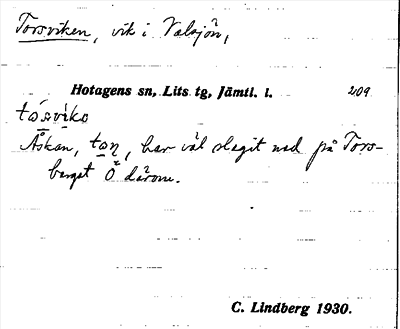 Torsviken, vik i Valsjön,
Hotagens sn, Lits tg, Jämtl. l. 209
tósvíko
Åskan, toṇ, har väl slagit ned på Tors-
berget Ö därom.
C. Lindberg 1930.